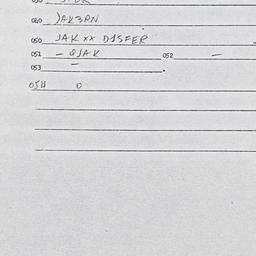 040 JAK3RN
050 JAK xx D1SFER
051 - QJAK 052 -
053 -
054 0